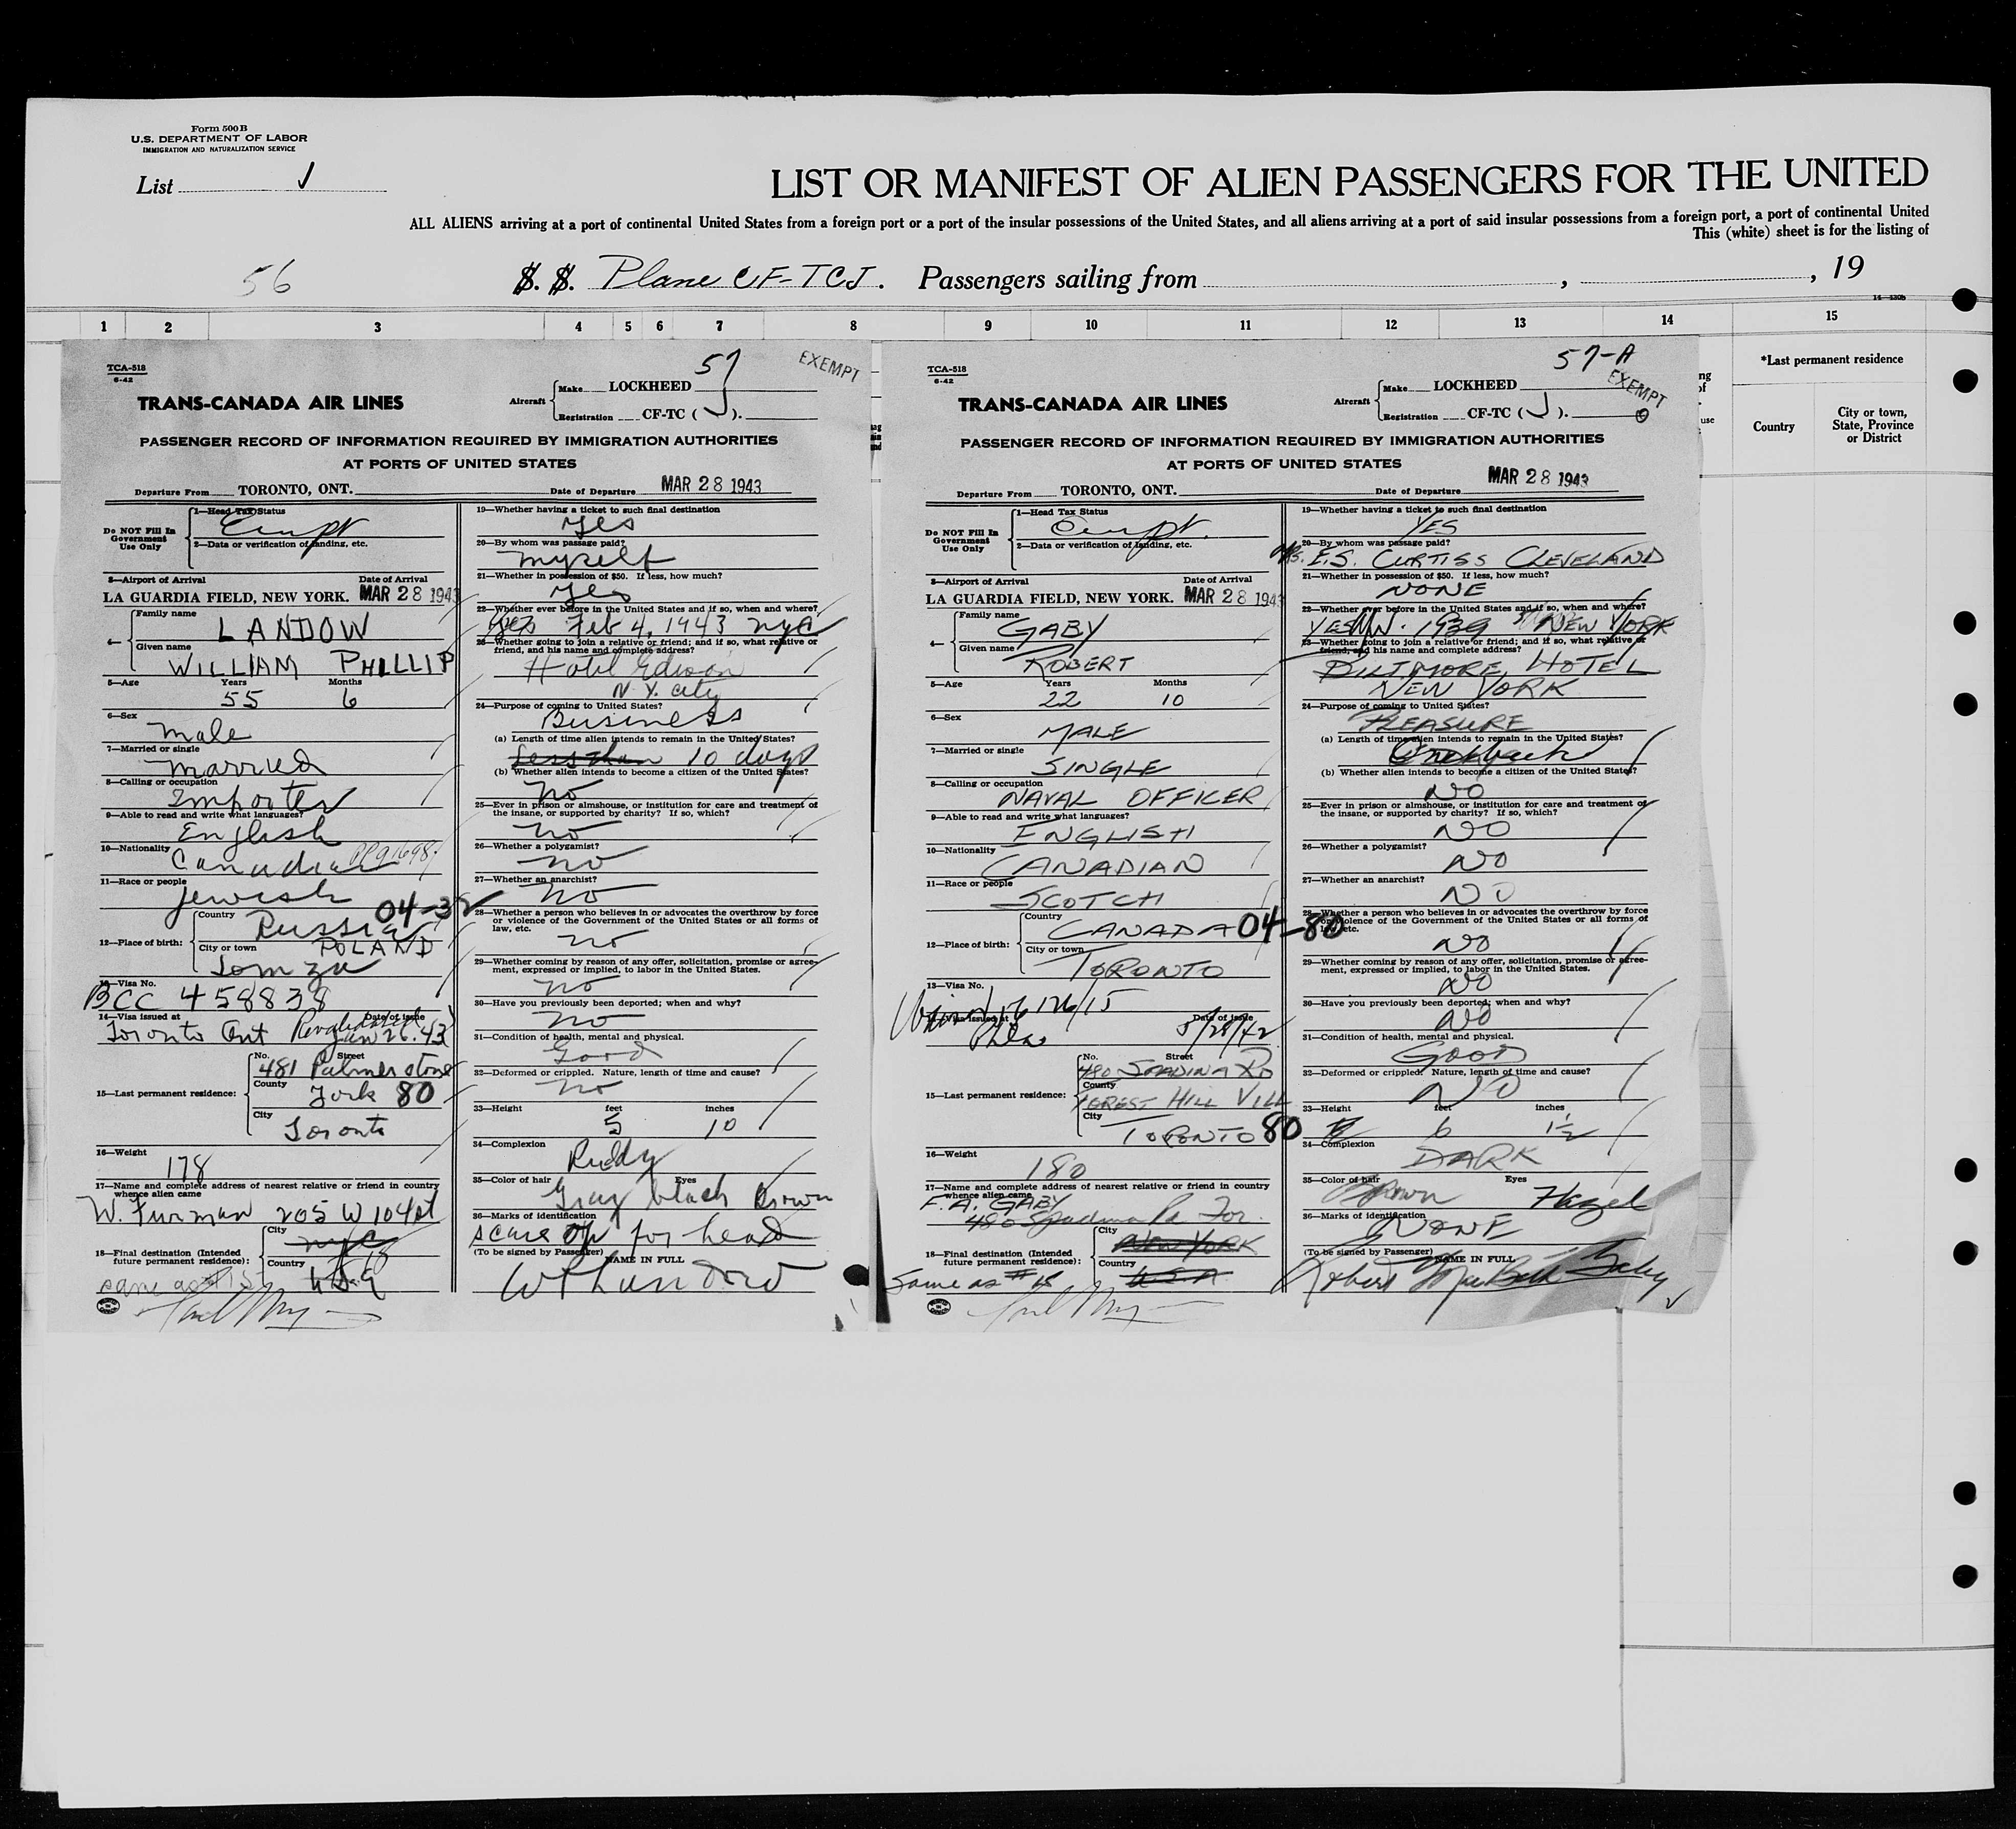 Form 500 B
U.S. DEPARTMENT OF LABOR
IMMIGRATION AND NATURALIZATION SERVICE
List
LIST OR MANIFEST OF ALIEN PASSENGERS FOR THE UNITED
ALL ALIENS arriving at a port of continental United States from a foreign port or a port of the insular possessions of the United States, and all aliens arriving at a port of said insular possessions from a foreign port, a port of continental United
This (white) sheet is for the listing of
56
S. S. Plane CF-TCJ. Passengers sailing from , , 19
1 2 3 4 5 6 7 8 9 10 11 12 13 14 15
*Last permanent residence
Country
City or town, State, Province or District
TCA-518
6-42
57
EXEMPT
TRANS-CANADA AIR LINES
Aircraft
Make LOCKHEED
Registration CF-TC ( J ).
PASSENGER RECORD OF INFORMATION REQUIRED BY IMMIGRATION AUTHORITIES
AT PORTS OF UNITED STATES
Departure From TORONTO, ONT. Date of Departure MAR 28 1943
Do NOT Fill In Government Use Only
1—Head Tax Status
2—Data or verification of landing, etc.
3—Airport of Arrival Date of Arrival
LA GUARDIA FIELD, NEW YORK. MAR 28 1943
4— Family name LANDOW
Given name WILLIAM PHILLIP
5—Age Years 55 Months 6
6—Sex
male
7—Married or single
married
8—Calling or occupation
Importer
9—Able to read and write what languages?
English
10—Nationality
Canadian
11—Race or people
Jewish
12—Place of birth: Country Russia 04-32
POLAND
City or town
Lomza
13—Visa No.
BCC 458838
14—Visa issued at Date of issue
Toronto Ont Revalidated Jan 26. 43
15—Last permanent residence: No. Street
481 Palmerstone
County York 80
City Toronto
16—Weight
178
17—Name and complete address of nearest relative or friend in country whence alien came
W. Furman 205 W 104 st
18—Final destination (Intended future permanent residence): City nyc
Country USA
same as #15
19—Whether having a ticket to such final destination
yes
20—By whom was passage paid?
myself
21—Whether in possession of $50. If less, how much?
yes
22—Whether ever before in the United States and if so, when and where?
yes Feb 4, 1943 nyc
23—Whether going to join a relative or friend; and if so, what relative or friend, and his name and complete address?
Hotel Edison
N.Y. City
24—Purpose of coming to United States?
Business
(a) Length of time alien intends to remain in the United States?
less than 10 days
(b) Whether alien intends to become a citizen of the United States?
no
25—Ever in prison or almshouse, or institution for care and treatment of the insane, or supported by charity? If so, which?
no
26—Whether a polygamist?
no
27—Whether an anarchist?
no
28—Whether a person who believes in or advocates the overthrow by force or violence of the Government of the United States or all forms of law, etc.
no
29—Whether coming by reason of any offer, solicitation, promise or agreement, expressed or implied, to labor in the United States.
no
30—Have you previously been deported; when and why?
no
31—Condition of health, mental and physical.
Good
32—Deformed or crippled. Nature, length of time and cause?
no
33—Height feet 5 inches 10
34—Complexion
Ruddy
35—Color of hair Eyes
Gray black Brown
36—Marks of identification
scare on for head
(To be signed by Passenger) NAME IN FULL
TCA-518
6-42
57-A
EXEMPT
TRANS-CANADA AIR LINES
Aircraft
Make LOCKHEED
Registration CF-TC ( J ).
PASSENGER RECORD OF INFORMATION REQUIRED BY IMMIGRATION AUTHORITIES
AT PORTS OF UNITED STATES
Departure From TORONTO, ONT. Date of Departure MAR 28 1943
Do NOT Fill In Government Use Only
1—Head Tax Status
2—Data or verification of landing, etc.
3—Airport of Arrival Date of Arrival
LA GUARDIA FIELD, NEW YORK. MAR 28 1943
4— Family name GABY
Given name ROBERT
5—Age Years 22 Months 10
6—Sex
MALE
7—Married or single
SINGLE
8—Calling or occupation
NAVAL OFFICER
9—Able to read and write what languages?
ENGLISH
10—Nationality
CANADIAN
11—Race or people
SCOTCH
12—Place of birth: Country CANADA 04-80
City or town
TORONTO
13—Visa No.
14—Visa issued at Date of issue
5/28/42
15—Last permanent residence: No. Street
480 SPADINA RD
County
FOREST HILL VILL
City TORONTO 80
16—Weight
180
17—Name and complete address of nearest relative or friend in country whence alien came
F. A. GABY
480 Spadina Rd Tor.
18—Final destination (Intended future permanent residence): City NEW YORK
Country U.S.A.
Same as #15
19—Whether having a ticket to such final destination
YES
20—By whom was passage paid?
E.S. CURTISS CLEVELAND
21—Whether in possession of $50. If less, how much?
NONE
22—Whether ever before in the United States and if so, when and where?
YES 1939 NEW YORK
23—Whether going to join a relative or friend; and if so, what relative or friend, and his name and complete address?
BILTMORE HOTEL
NEW YORK
24—Purpose of coming to United States?
PLEASURE
(a) Length of time alien intends to remain in the United States?
One week
(b) Whether alien intends to become a citizen of the United States?
NO
25—Ever in prison or almshouse, or institution for care and treatment of the insane, or supported by charity? If so, which?
NO
26—Whether a polygamist?
NO
27—Whether an anarchist?
NO
28—Whether a person who believes in or advocates the overthrow by force or violence of the Government of the United States or all forms of law, etc.
NO
29—Whether coming by reason of any offer, solicitation, promise or agreement, expressed or implied, to labor in the United States.
NO
30—Have you previously been deported; when and why?
NO
31—Condition of health, mental and physical.
GOOD
32—Deformed or crippled. Nature, length of time and cause?
NO
33—Height feet 6 inches 1½
34—Complexion
DARK
35—Color of hair Eyes
Brown Hazel
36—Marks of identification
NONE
(To be signed by Passenger) NAME IN FULL
Robert MacBeth Gaby